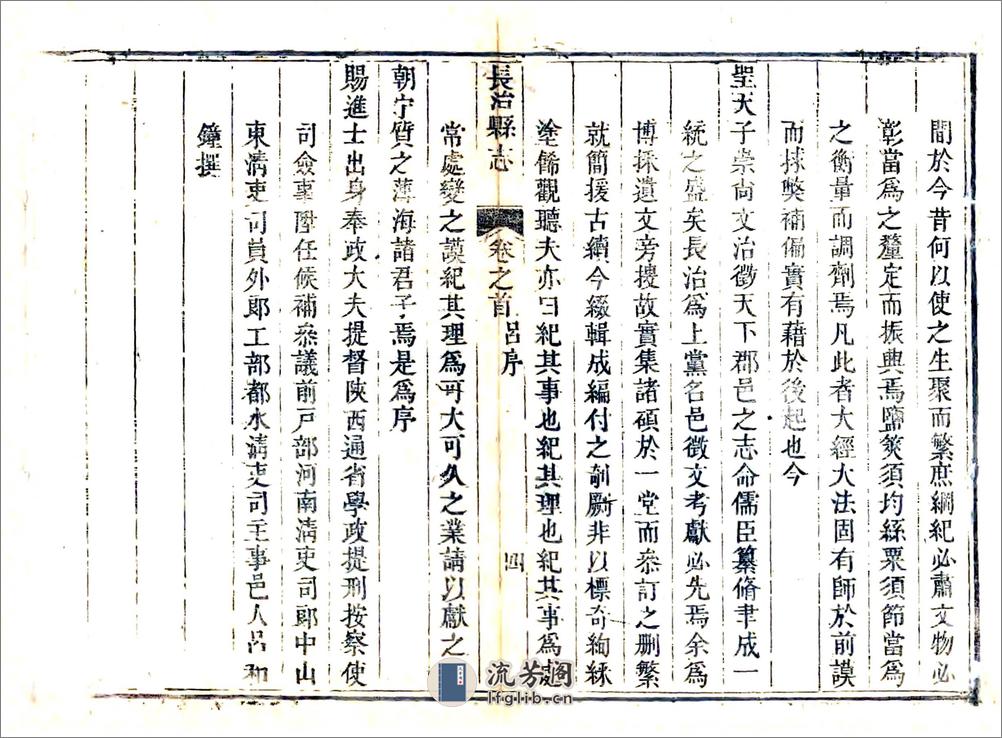 間於今昔何以使之生聚而繁庶綱紀必肅文物必
彰當爲之釐定而振興焉鹽筴須均絲粟須節當爲
之衡量而調劑焉凡此者大經大法固有師於前謨
而捄獘補偏實有藉於後起也今
聖天子崇尚文治徵天下郡邑之志命儒臣纂脩聿成一
統之盛矣長治爲上黨名邑徵文考獻必先焉余爲
博採遺文旁搜故實集諸碩於一堂而叅訂之刪繁
就簡援古續今綴輯成編付之剞劂非以標奇絢綵
塗餙觀聽夫亦曰紀其事也紀其理也紀其事爲
長治縣志 卷之首 呂序 四
常處變之謨紀其理爲可大可久之業請以獻之
朝宁質之薄海諸君子焉是爲序
賜進士出身奉政大夫提督陝西通省學政提刑按察使
司僉事陞任候補叅議前戸部河南淸吏司郞中山
東淸吏司員外郞工部都水淸吏司主事邑人呂和
鐘撰
流芳阁
lfglib.cn